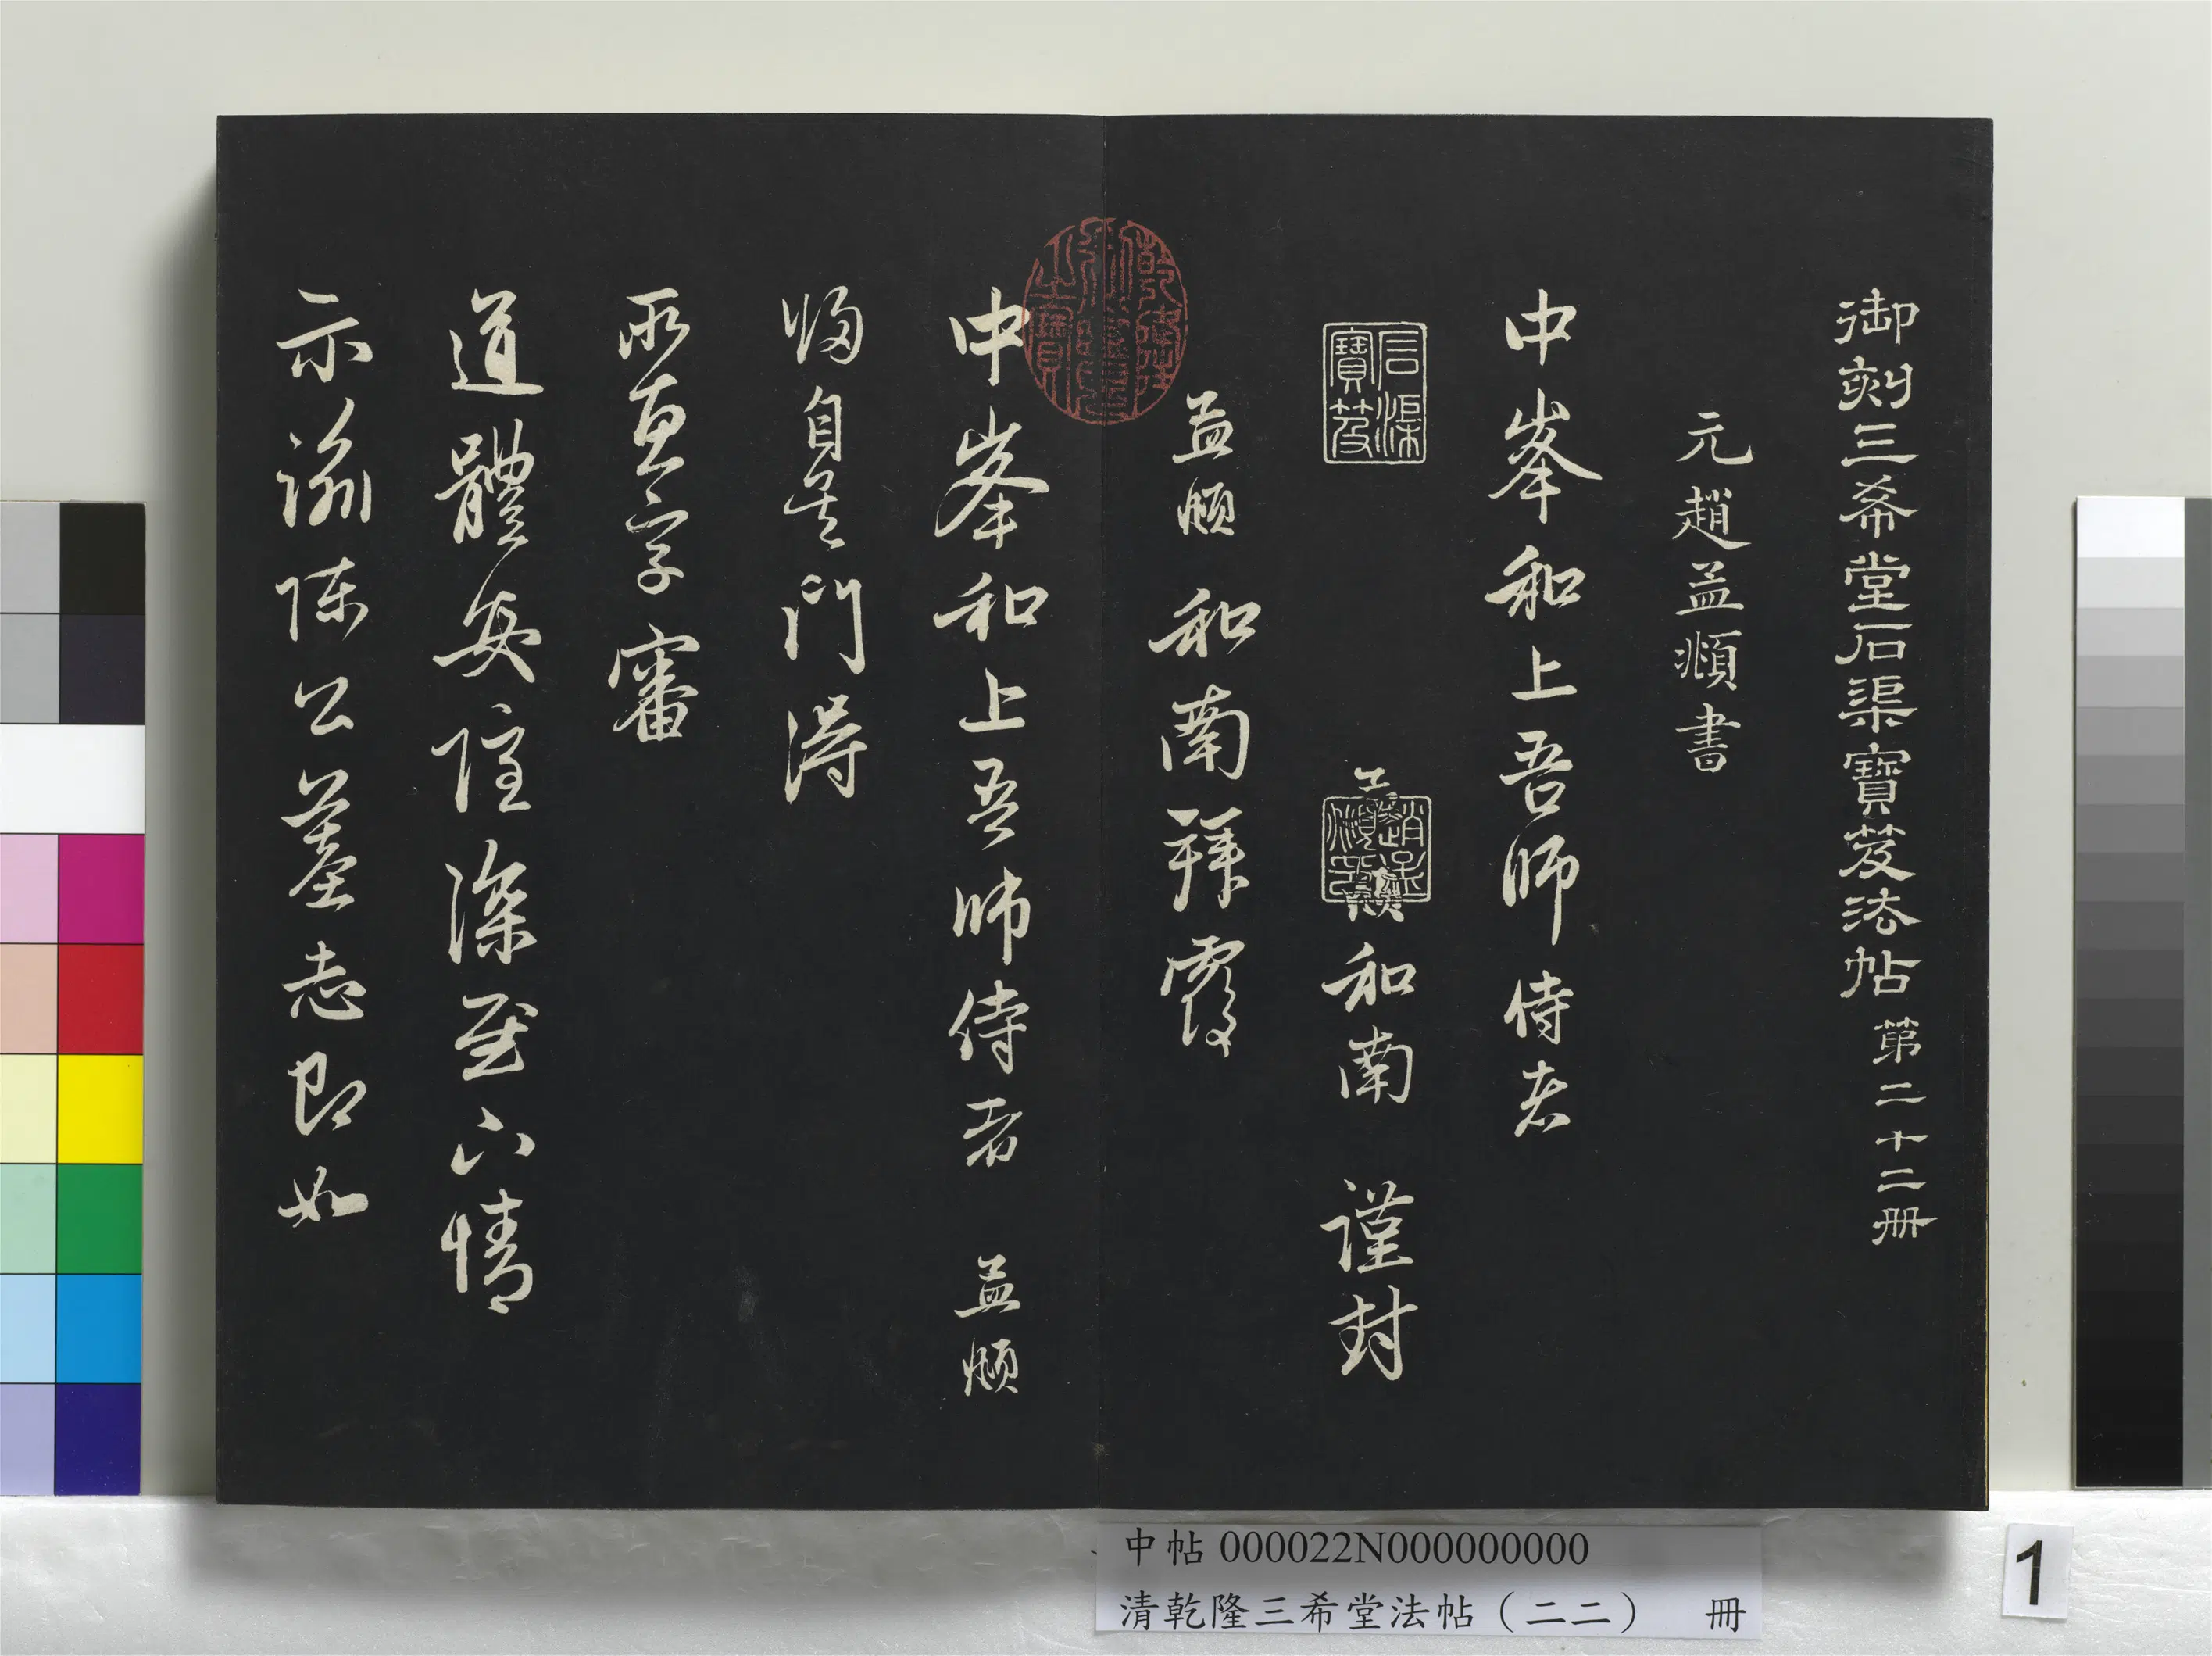 御刻三希堂石渠寶笈法帖 第二十二册
元趙孟頫書
中峯和上吾師侍者
石渠寶笈
孟頫和南 謹封
趙孟頫印
孟頫和南拜覆
中峯和上吾師侍者 孟頫
歸自吳門得
所惠字審
道體安隱深慰下情
示諭陳公墓志即如
中帖 000022N000000000
清乾隆三希堂法帖（二二） 冊
1